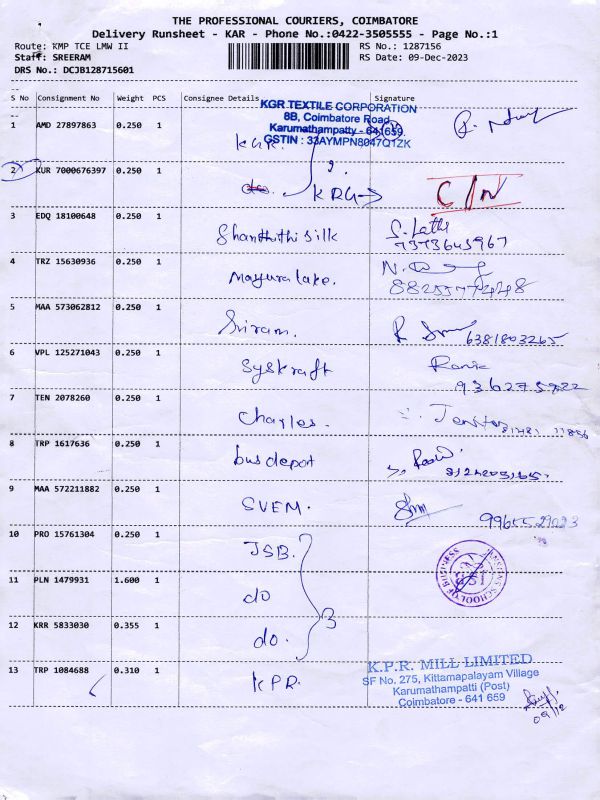 THE PROFESSIONAL COURIERS, COIMBATORE
Delivery Runsheet - KAR - Phone No.:0422-3505555 - Page No.:1
Route: KMP TCE LMW II RS No.: 1287156
Staff: SREERAM RS Date: 09-Dec-2023
DRS No.: DCJB128715601
S No Consignment No Weight PCS Consignee Details Signature
KGR TEXTILE CORPORATION
8B, Coimbatore Road,
Karumathampatty - 641659.
GSTIN : 33AYMPN8047Q1ZK
1 AMD 27897863 0.250 1 KGR.
2 KUR 7000676397 0.250 1 do. KRG→ C/N
3 EDQ 18100648 0.250 1 Shanthithi silk
7373645967
4 TRZ 15630936 0.250 1 Mayura lake.
5 MAA 573062812 0.250 1 Sriram. 6381803265
6 VPL 125271043 0.250 1 Syskraft
7 TEN 2078260 0.250 1 Charles.
8 TRP 1617636 0.250 1 bus depot
9 MAA 572211882 0.250 1 SVEM.
10 PRO 15761304 0.250 1 JSB.
SCHOOL OF BUSINESS
11 PLN 1479931 1.600 1 do
3
12 KRR 5833030 0.355 1 do.
13 TRP 1084688 0.310 1 KPR.
K.P.R. MILL LIMITED
SF No. 275, Kittamapalayam Village
Karumathampatti (Post)
Coimbatore - 641 659
09/12